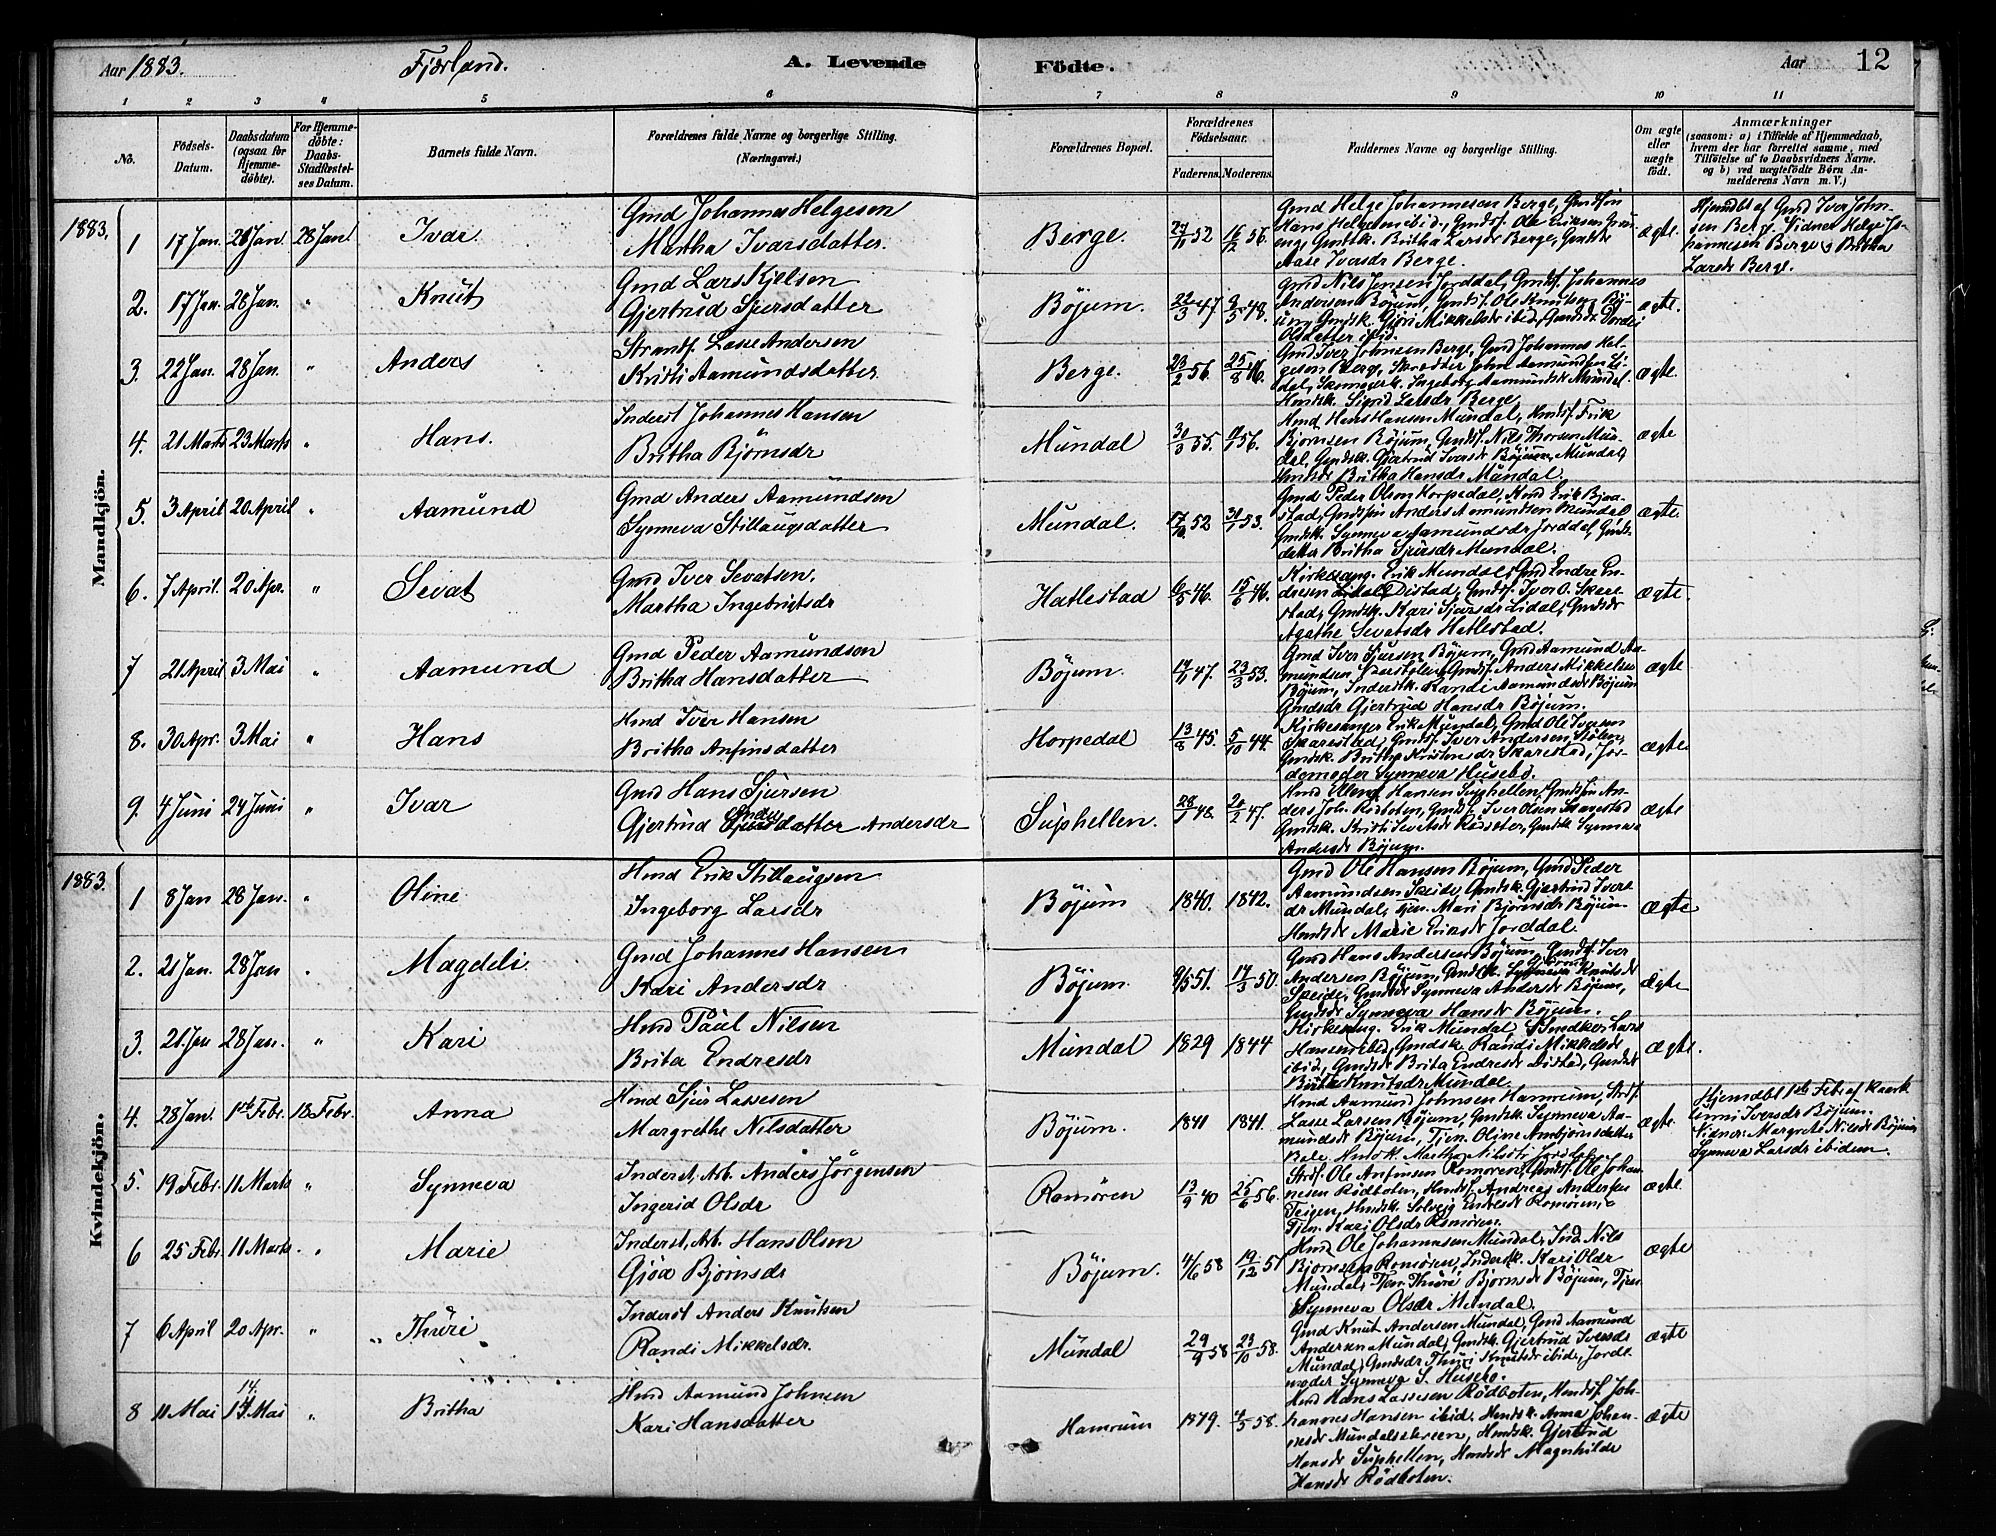 Aar 1883. Fjærland. A. Levende Födte. Aar 12
1 2 3 4 5 6 7 8 9 10 11
No.
Födsels-Datum.
Daabsdatum (ogsaa for Hjemme-döbte).
For Hjemme-döbte: Daabs-Stadfæstel-ses Datum.
Barnets fulde Navn.
Forældrenes fulde Navne og borgerlige Stilling.
(Næringsvei.)
Forældrenes Bopæl.
Forældrenes Födselsaar.
Faderens. Moderens.
Faddernes Navne og borgerlige Stilling.
Om ægte eller uægte födt.
Anmærkninger
(saasom: a) i Tilfælde af Hjemmedaab, hvem der har forrettet samme, med Tilföielse af to Daabsvidners Navne. og b) ved uægtefödte Börn An-melderens Navn m. V.)
Mandkjön.
1883.
1 17 Jan. 28 Jan. 28 Jan. Ivar.
Gmd Johannes Helgesen
Martha Ivarsdatter.
Berge. 52 16/2 56.
Gmd Helge Johannesen Berge, Gmdsön
Hans Helgesen ibid, Gmdsf. Ole Eriksen
Gmdsk. Britha Larsdr Berge, Gmdsdr
Aase Iversdr Berge.
ægte.
Hjemdbt af Gmd Iver John-
sen Berge. Vidner Helge Jo-
hannesen Berge & Britha
Larsdr Berge.
2. 17 Jan. 28 Jan. " Knut
Gmd Lars Kjelsen
Gjertrud Sjursdatter
Böjum. 22/3 47. 9/5 48.
Gmd Nils Jensen Jorddal, Gmdsf. Johannes
Andersen Böjum, Gmdsf. Ole Knutsen Bö-
jum, Gmdsk. Gjöri Mikkelsdr ibid, Gmdsdr Dordei
Olsdatter ibid.
ægte.
3. 22 Jan. 28 Jan. " Anders
Strandf. Lasse Andersen
Kristi Aamundsdatter
Berge. 23/2 56. 25/8 46.
Gmd Iver Johnsen Berge, Gmd Johannes Hel-
gesen Berge, Skrædder John Aamundsen Li-
dal, Ingeborg Aamundsdr Mundal.
Hmdsk. Sigrid Larsdr Berge.
ægte.
4. 21 Marts 23 Marts " Hans.
Inderst Johannes Hansen
Britha Björnsdr
Mundal 30/3 55. 56.
Hmd Hans Hansen Mundal, Hmdsf. Erik
Björnsen Böjum, Gmdsf. Nils Thorsen Mun-
dal, Gmdsk. Gjertrud Iversdr Böjum, Mundal,
Gmdsdr Britha Hansdr Mundal.
ægte
5. 3 April. 20 April " Aamund
Gmd Anders Aamundsen
Synneva Stillaugsdatter
Mundal. 17/10 52 31/1 53.
Gmd Peder Olsen Horpedal, Hmd Erik Bjaa-
stad, Gmdsön Anders Aamundsen Mundal
Gmdsk. Synneva Aamundsdr Jorddal, Gmds-
datter Britha Sjursdr Mundal.
ægte.
6. 7 April. 20 Apr. " Sevat
Gmd Iver Sevatsen.
Martha Ingebrigtsdr
Hatlestad 6/5 46. 15/6 46.
Kirkesang. Erik Mundal, Gmd Endre En-
dresen Distad, Gmdsf. Iver O. Skare-
stad, Gmdsk. Kari Sjursdr Lidal, Gmdsdr
Agathe Sevatsdr Hatlestad.
ægte.
7 21 April 3 Mai " Aamund
Gmd Peder Aamundson
Britha Hansdatter
Böjum. 47. 23/3 53.
Gmd Iver Sjursen Böjum, Gmd Aamund Aa-
mundsen, Gmdsf. Anders Mikkelsen
Böjum, Indersk. Randi Aamundsdr Böjum
Gmdsdr Gjertrud Hansdr Böjum.
ægte
8. 30 Apr. 3 Mai " Hans
Hmd Iver Hansen
Britha Anfinsdatter
Horpedal 13/8 45. 5/10 44.
Kirkesanger Erik Mundal, Gmd Ole Iversen
Skarestad, Gmdsf. Iver Andersen Stölen,
Gmdsk. Britha Kristensdr Skarestad, Jor-
demoder Synneva Husebö.
ægte
9. 4 Juni 24 Juni " Ivar
Gmd Hans Sjursen
Gjertrud Sjursdatter Andersdr
Suphellen. 28/1 48. 20/2 47.
Hmd Hansen Suphellen, Gmdsön An-
ders Joh. Rödboten, Gmdsf. Iver Olsen Skarestad
Gmdsk. Kristi Sevatsdr Rödseter, Gmdsk Synneva
Andersdr Böjum.
ægte
Kvindekjön.
1883.
1 8 Jan 28 Jan. " Oline
Hmd Erik Stillaugsen
Ingeborg Larsdr
Böjum 1840. 1842.
Gmd Ole Hansen Böjum, Gmd Peder
Aamundsen Skeide, Gmdsk. Gjertrud Ivers-
dr Mundal, Tjen. Mari Björnsdr Böjum
Hmdsdr Marie Eriksdr Jorddal.
ægte
2. 21 Jan. 28 Jan " Magdeli.
Gmd Johannes Hansen
Kari Andersdr
Böjum. 9/5 51. 17/3 50.
Gmd Hans Andersen Böjum, Gmdsf. Iver
Andersen Böjum, Gmdsk. Synneva Knutsdr
Skeide, Gmdsdr Synneva Andersdr Böjum,
Gmdsdr Synneva Hansdr Böjum.
ægte
3. 21. Jan 28 Jan. " Kari
Hmd Paul Nilsen
Brita Endresdr
Mundal 1829 1844
Kirkesang. Erik Mundal, Lars
Hansen ibid, Gmdsk. Randi Mikkelsdr
ibid, Gmdsdr Brita Endresdr Distad, Gmdsdr
Britha Knutsdr Mundal
ægte.
4. 28 Jan. 1ste Febr. 18 Febr. Anna
Hmd Sjur Lassesen
Margrethe Nilsdatter
Böjum. 1841 1841.
Hmd Aamund Johnsen Hamrum, Strdf.
Lasse Larsen Böjum, Gmdsk. Synneva Aa-
mundsdr Böjum, Tjen. Oline Ambjörnsdatter
Bale, Hmdsk. Martha Nilsdr Jorddal.
ægte
Hjemdbt 1ste Febr af
Iversdr Böjum.
Vidner: Margrete Nilsdr Böjum,
Synneva Larsdr ibidem.
5. 19 Febr. 11 Marts " Synneva
Inderst, Arb. Anders Jörgensen
Ingerid Olsdr
Romören 13/9 40 25/6 56.
Strdf. Ole Anfinsen Romören, Gmdsf. Ole Johan-
nesen Rödboten, Hmdsf. Andreas Andersen
Teigen, Hmdsk. Solveig Endresdr Romören,
Tjen. Kari Olsdr Romören.
ægte
6 25 Febr. 11 Marts. " Marie
Inderst, Arb. Hans Olsen
Gjöa Björnsdr
Böjum. 4/6 58 19/12 51
Hmd Ole Johannesen Mundal, Ind. Nils
Bjornsen Romören, Indersk. Kari Olsdr
Mundal, Tjen. Thuri Björnsdr Böjum, Tjen.
Synneva Olsdr Mundal.
ægte
7 6 April 20 Apr. " Thuri
Inderst Anders Knutsen
Randi Mikkelsdr.
Mundal 29/9 58 23/10 58.
Gmd Knut Andersen Mundal, Gmd Aamund
Andersen Mundal, Gmdsk. Gjertrud Iversdr
Mundal, Gmdsdr Thuri Knutsdr ibid, Jorde-
moder Synneva S. Husebö.
ægte
8 11 Mai 14. Mai " Britha
Hmd Aamund Johnsen
Kari Hansdatter
Hamrum 1879. 4/5 58.
Hmd Hans Lassesen Rödboten, Hmdsf. Joh-
hannes Hansen ibid, Hmdsk. Anna Johan-
nesdr Mundalsskreen, Hmdsk. Gjertrud
Hansdr Suphellen, Hmdsdr Magnhilde
Hansdr Rödboten.
ægte